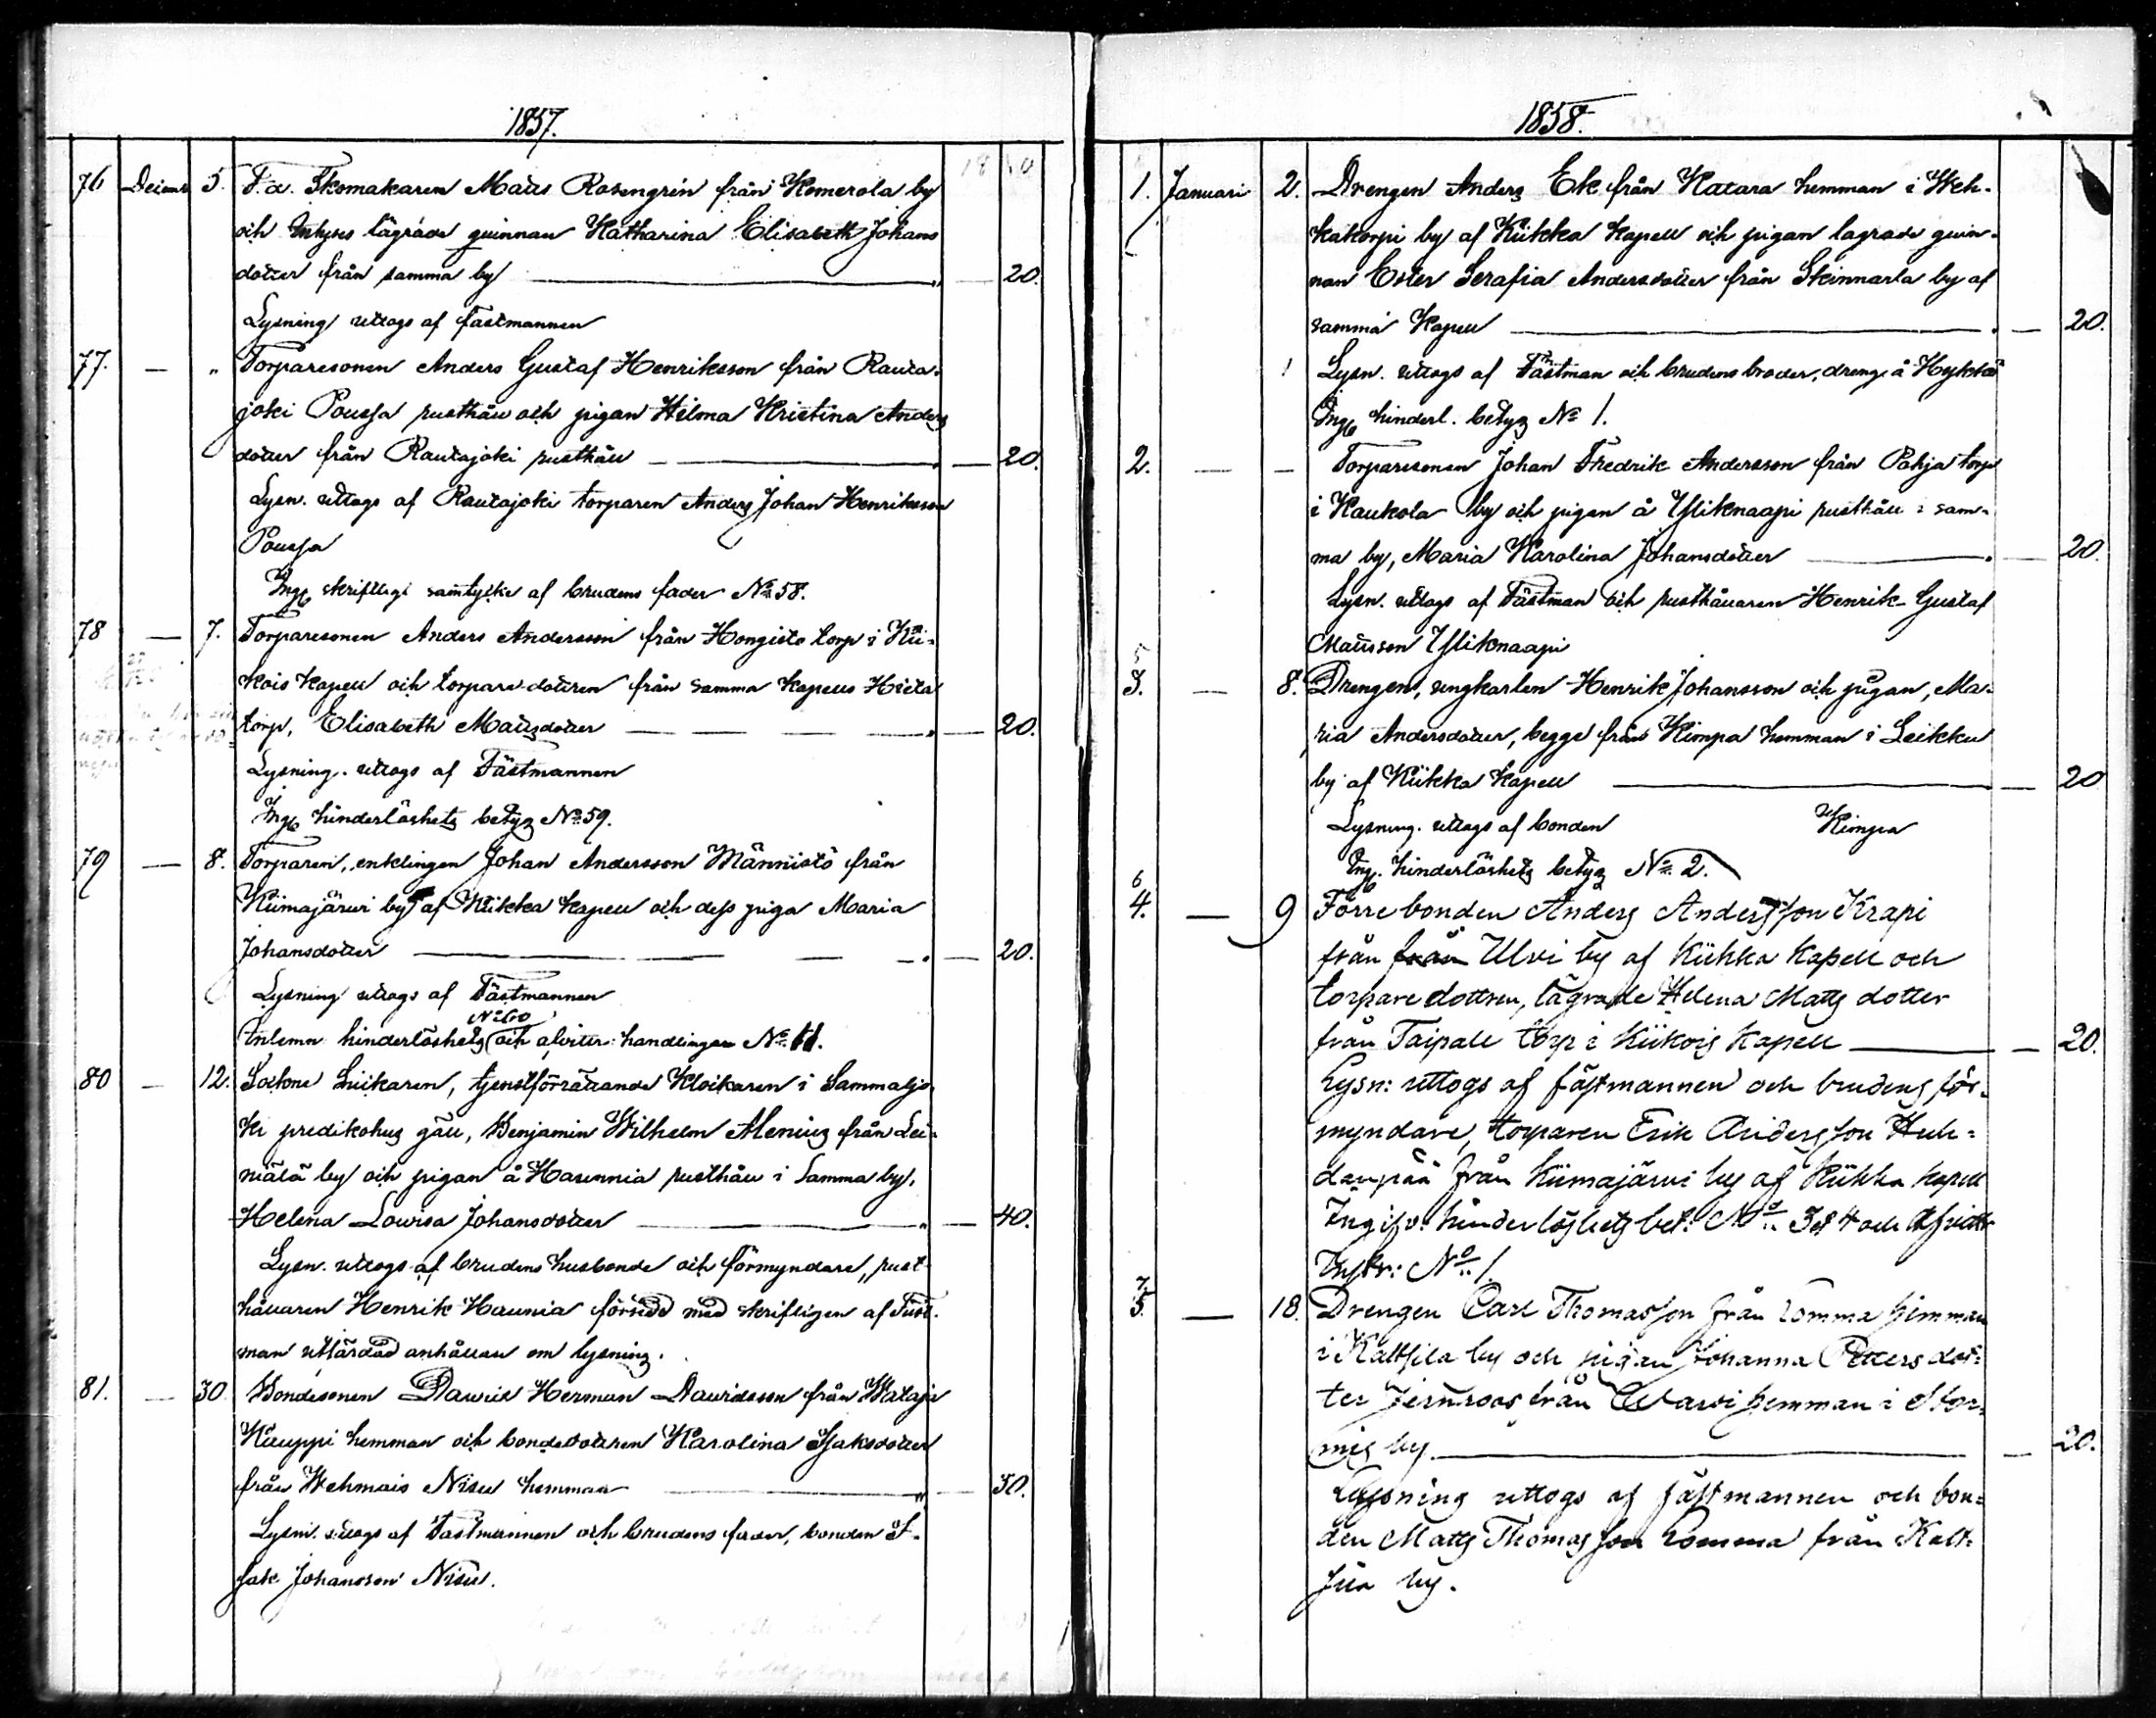 1857.
76 Decemr 5. F.d. Skomakaren Matts Rosengrén från Komerola by
och Inhyses lägrade quinnan Katharina Elisabeth Johans
dotter från samma by 20.
Lysning uttogs af fästmannen
77. — „ Torparesonen Anders Gustaf Henriksson från Rauta-
joki Poussa rusthåll och pigan Hilma Kristina Anders
dotter från Rautajoki rusthåll 20.
Lysn. uttogs af Rautajoki torparen Anders Johan Henriksson
Poussa
Ingf skriftligt samtycke af brudens fader No 58.
78 — 7. Torparesonen Anders Andersson från Hongisto torp i Kii-
kois Kapell och torpare dottren från samma Kapells Hieta
torp, Elisabeth Mattsdotter 20.
Lysning. uttogs af Fästmannen
Ingf hinderlöshets betyg No 59.
79 — 8. Torparen, enklingen Johan Andersson Männistö från
Kiimajärwi by af Kiikka Kapell och dess piga Maria
Johansdotter 20.
Lysning uttogs af Fästmannen
No 60
Inlemn hinderlöshets och afvittr: handlingar No 61.
80 — 12. Sockne Snickaren, tjenstförrättande Klockaren i Sammaljo
ki predikohus gäll, Benjamin Wilhelm Alenius från Lei-
niälä by och pigan å Haunnia rusthåll i Samma by,
Helena Lowisa Johansdotter 40.
Lysn. uttogs af brudens husbonde och förmyndare, rust-
hållaren Henrik Haunia försedd med skriftligen af Fäst-
man utfärdad anhållan om lysning.
81. — 30. Bondesonen Dawid Herman Dawidsson från Wataja
Kauppi hemman och bondedottren Karolina Isaksdotter
från Wehmais Nisu hemman 30.
Lysni. uttogs af Fästmannen och brudens fader, bonden I-
sak Johansson Nisu.
1858.
1. Januari 2. Drengen Anders Ek från Katara hemman i Weh-
kakorpi by af Kiikka Kapell och pigan lägrade quin-
nan Ester Serafia Andersdotter från Skinnarla by af
samma Kapell 20.
Lysn. uttogs af Fästman och brudens broder, dreng å
Ingf hinderl. betyg No 1.
2. — — Torparesonen Johan Fredrik Andersson från Pohja torp
i Kaukola by och pigan å Yliknaapi rusthåll i sam-
ma by, Maria Karolina Johansdotter 20.
Lysn. uttogs af Fästman och rusthållaren Henrik Gustaf
Mattsson Yliknaapi
5
3. — 8. Drengen, ungkarlen Henrik Johansson och pigan, Ma-
ria Andersdotter, begge från Kimpa hemman i Leikku
by af Kiikka Kapell 20
Lysning. uttogs af bonden Kimpa
Ingf. hinderlöshets betyg No 2.
6
4. — 9 Förre bonden Anders Andersson Krapi
från från Ulvi by af Kiikka Kapell och
torpare dottren, lägrade Helena Matts dotter
från Taipale torp i Kiikois Kapell 20.
Lysn: uttogs af fästmannen och brudens för-
myndare, torparen Erik Andersson Huh-
danpää från Kiimajärwi by af Kiikka Kapell
Ingifv: hinderlöshets bet: No 3 et 4 och Afvittr
Instr: No 1.
7
5. — 18. Drengen Carl Thomasson från Lomma hemman
i Kaltsila by och pigan Johanna Petters dot-
ter från hemman i Stor-
mis by 20.
Lysning uttogs af fästmannen och bon-
den Matts Thomasson Lomma från Kalt-
sila by.